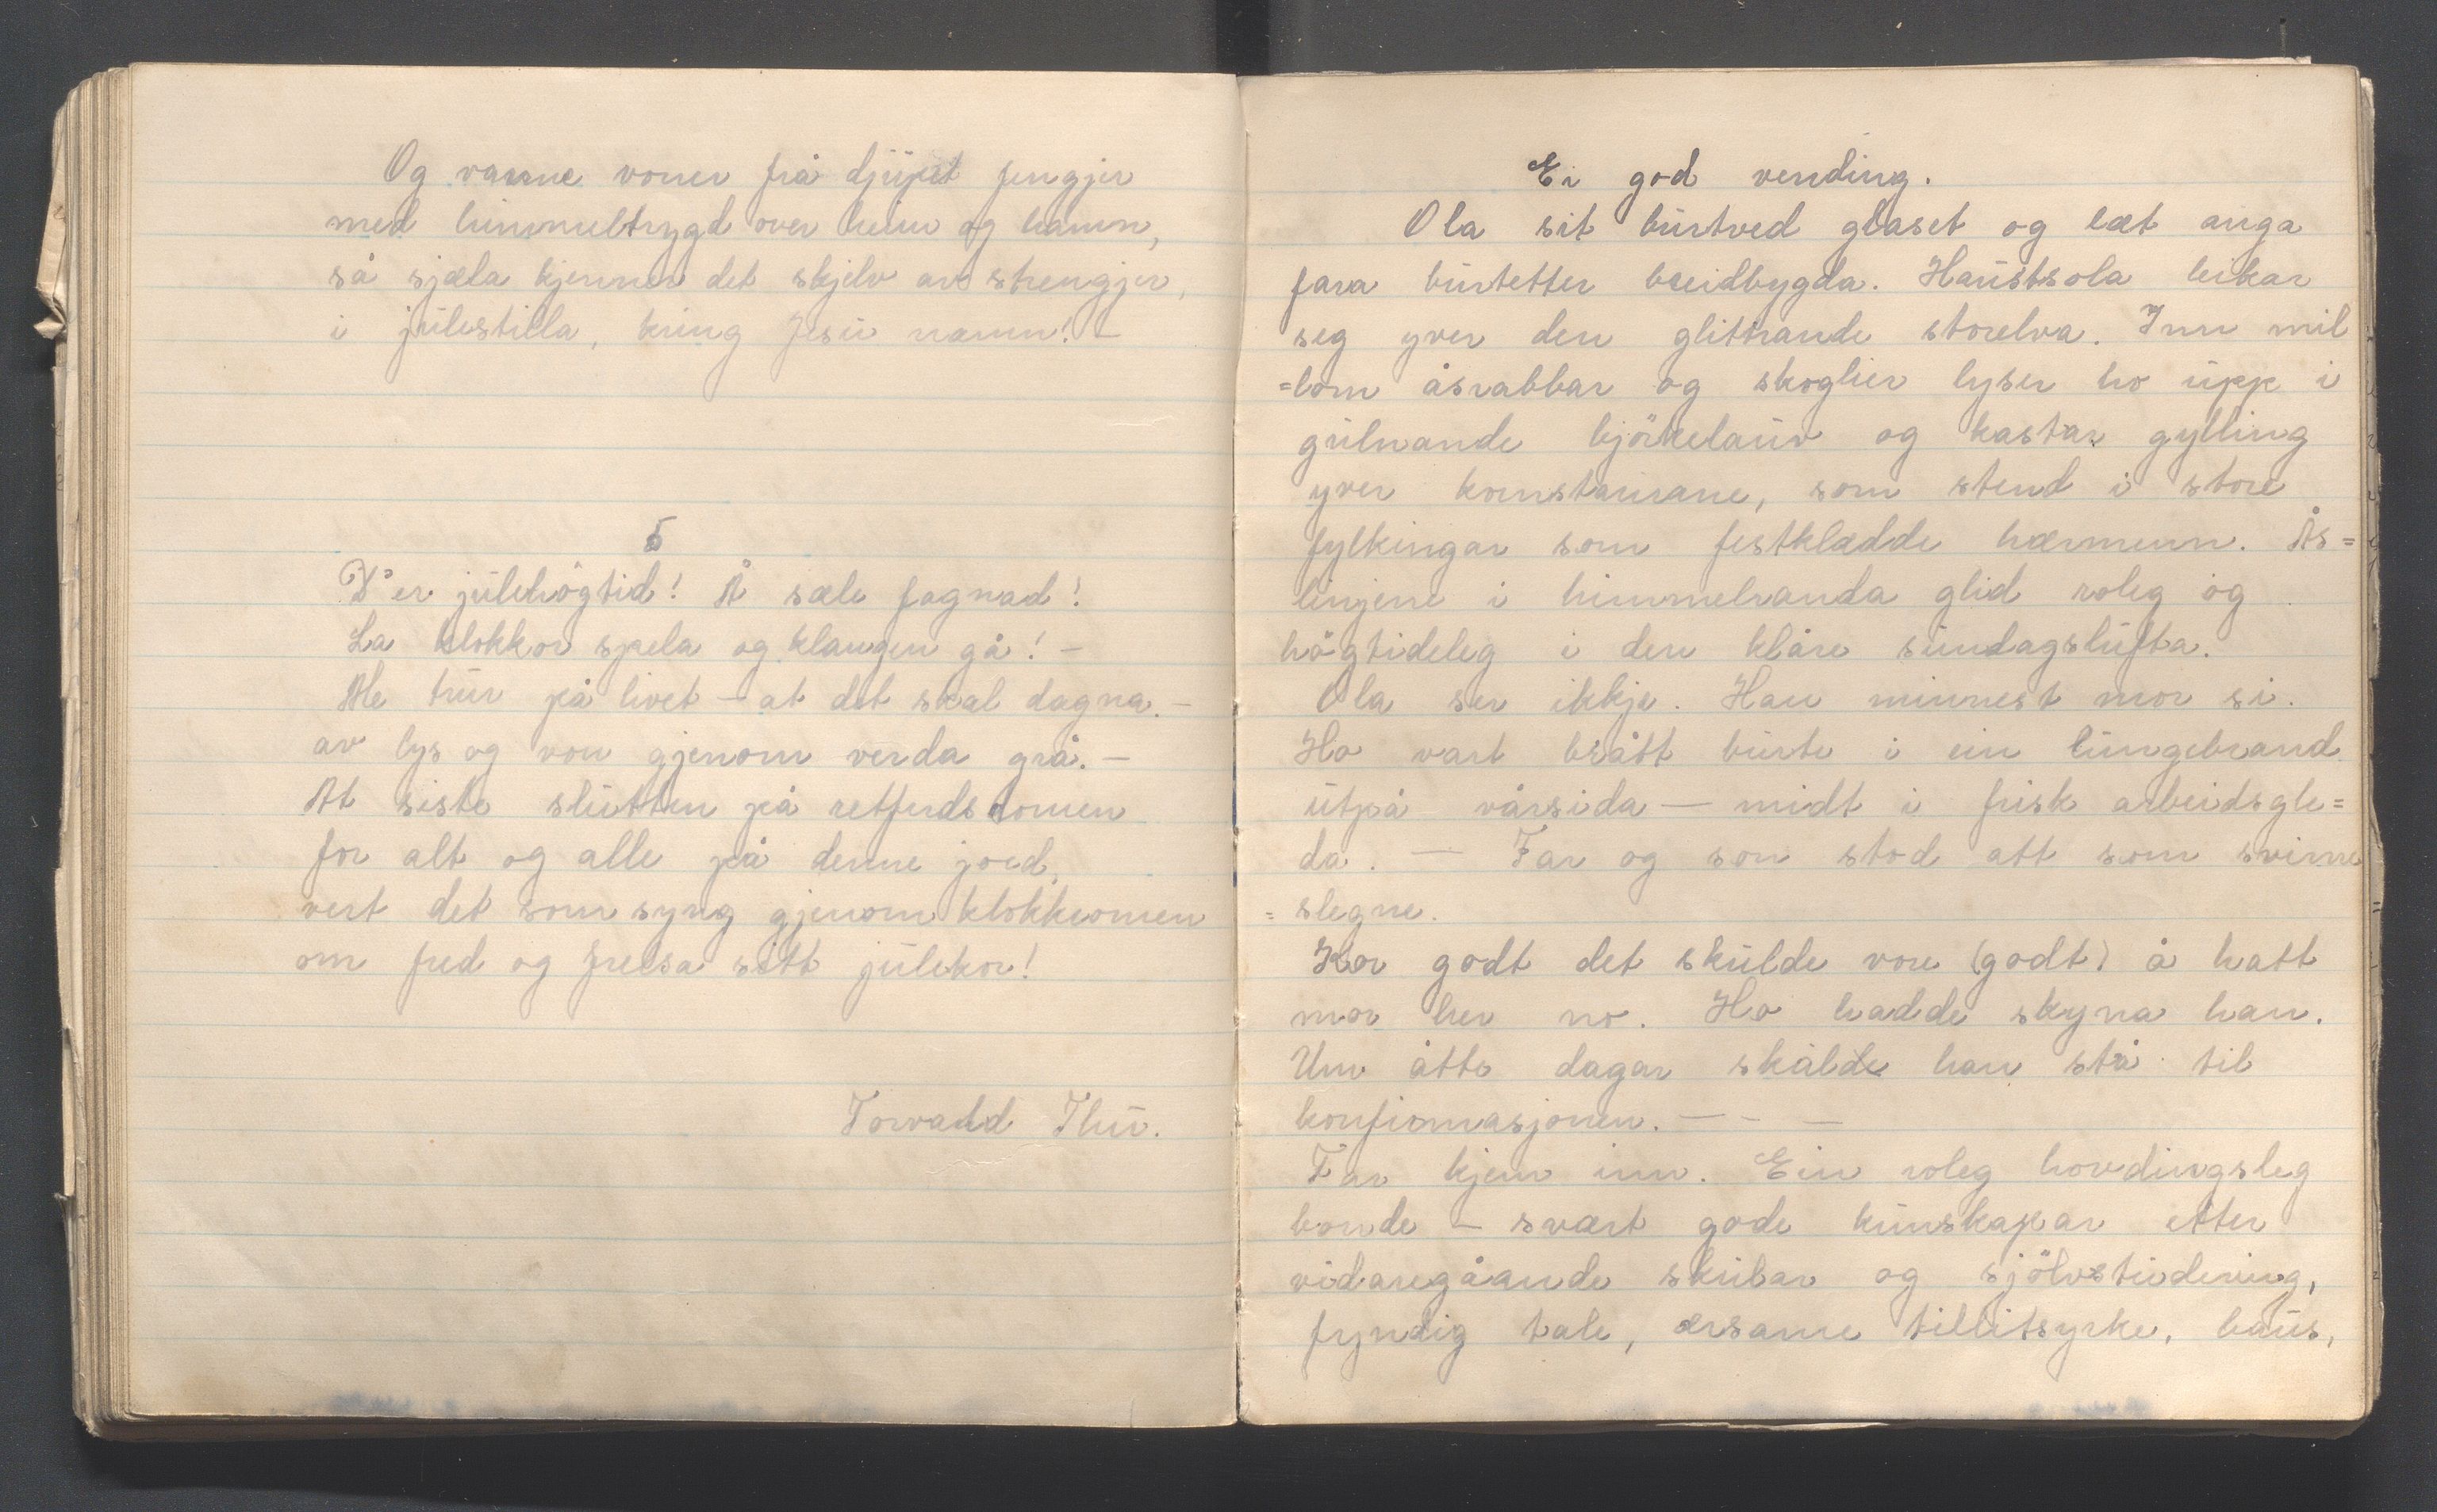 Og varme voner frå djupet fengjer
med himmeltrygd over heim og hamn,
så sjæla kjenner det skjelv av strengjer,
i julestilla, kring Jesu namn! –
5
D'er julehögtid! Å sæle fagnad!
La klokkor spela og klangen gå! –
Me trur på livet – at det skal dagna –
av lys og von gjenom verda grå. –
At siste slutten på retferdsdomen
for alt og alle på denne jord,
vert det som syng gjenom klokkeomen
om fred og frelsa sitt julekor!
Torvald Thu.
Ei god vending.
Ola sit burtved glaset og læt auga
fara burtetter breidbygda. Haustsola leikar
seg yver den glittrande storelva. Inn mil
=lom åsrabbar og skoglier lyser ho upp i
gulnande björkelauv og kastar gylling
yver kornstaurane, som stend i store
fylkingar som festklædde hærmenn. Ås=
linjene i himmelranda glid roleg og
högtideleg i den klåre sundagslufta.
Ola ser ikkje. Han minnest mor si.
Ho vart brått burte i ein lungebrand
utpå vårsida — midt i frisk arbeidsgle=
da. — Far og son stod att som svime
=slegne.
Kor godt det skulde vore (godt) å hatt
mor her no. Ho hadde skyna han.
Um åtte dagar skulde han stå til
konfirmasjonen. — – —
Far kjem inn. Ein roleg hovdingsleg
bonde – svært gode kunskapar etter
vidaregåande skular og sjölvstudering,
fyndig tale, ærsame tillitsyrke, baus,